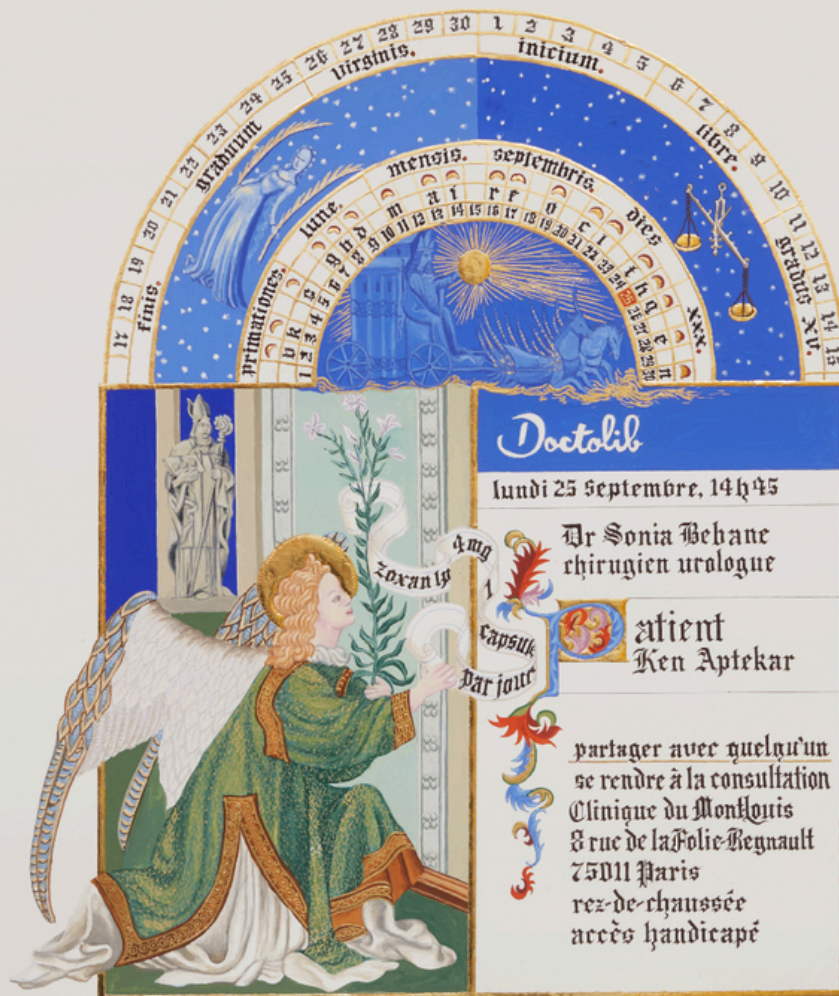 17 18 19 20 21 22 23 24 25 26 27 28 29 30 1 2 3 4 5 6 7 8 9 10 11 12 13 14 15
finis. graduum virginis. inicium. libre. gradus xv.
primationes. lune. mensis. septembris. dies xxx.
m a i r e o c l t h q e n
1 2 3 4 5 6 7 8 9 10 11 12 13 14 15 16 17 18 19 20 21 22 23 24 25 26 27 28 29 30
Doctolib
lundi 25 septembre, 14h45
Dr Sonia Bebane
chirugien urologue
Patient
Ken Aptekar
zoxan lp
4mg
1
capsule
par jour
partager avec quelqu'un
se rendre à la consultation
Clinique du MontLouis
8 rue de la Folie-Regnault
75011 Paris
rez-de-chaussée
accès handicapé